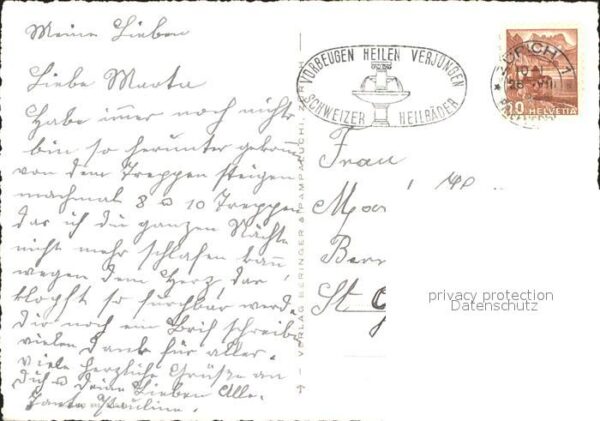 Meine Lieben
Liebe Marta
Habe immer noch nichts
bin so herunter gekomm
von dem Treppen steigen
machmal 8 10 Treppen
das ich die ganzen Nächte
nicht mehr schlafen kann
wegen dem Herz, das
klopft so furchbar werd
Dir noch ein Brif schreibe
vielen dank für alles.
viele herzliche Grüße an
Dich Deine Lieben Alle.
Tante Pauline.
VERLAG BERINGER & PAMPALUCHI, ZÜRICH
VORBEUGEN HEILEN VERJÜNGEN
SCHWEIZER HEILBÄDER
ZÜRICH 1
10
HELVETIA
Frau
St. G
privacy protection
Datenschutz